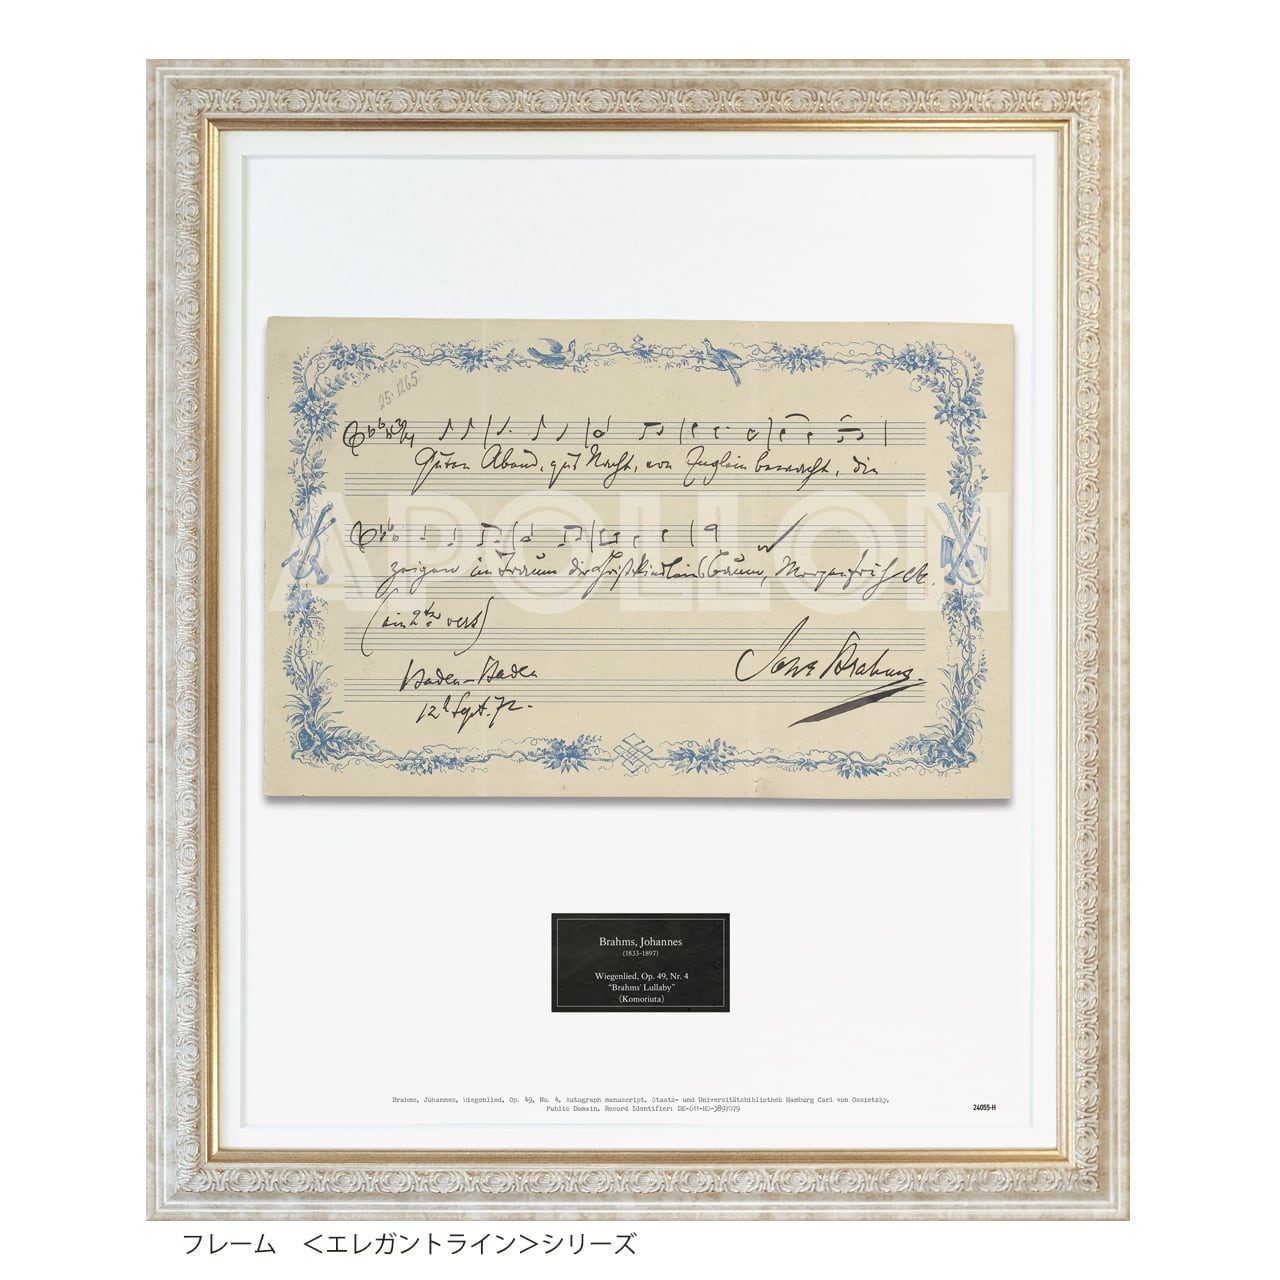 25.1265
Guten Abend, gut Nacht, von Englein bewacht, die
zeigen im Traum dir Christkindleins Baum, Morgenfrüh etc.
APOLLON
vers)
Baden-Baden
12 Sept. 72.
Johs Brahms.
Brahms, Johannes
(1833-1897)
Wiegenlied, Op. 49, Nr. 4
"Brahms' Lullaby"
(Komoriuta)
Brahms, Johannes, Wiegenlied, Op. 49, No. 4, Autograph manuscript, Staats- und Universitätsbibliothek Hamburg Carl von Ossietzky,
Public Domain, Record Identifier: DE-611-HS-3897079
24055-H
フレーム　＜エレガントライン＞シリーズ